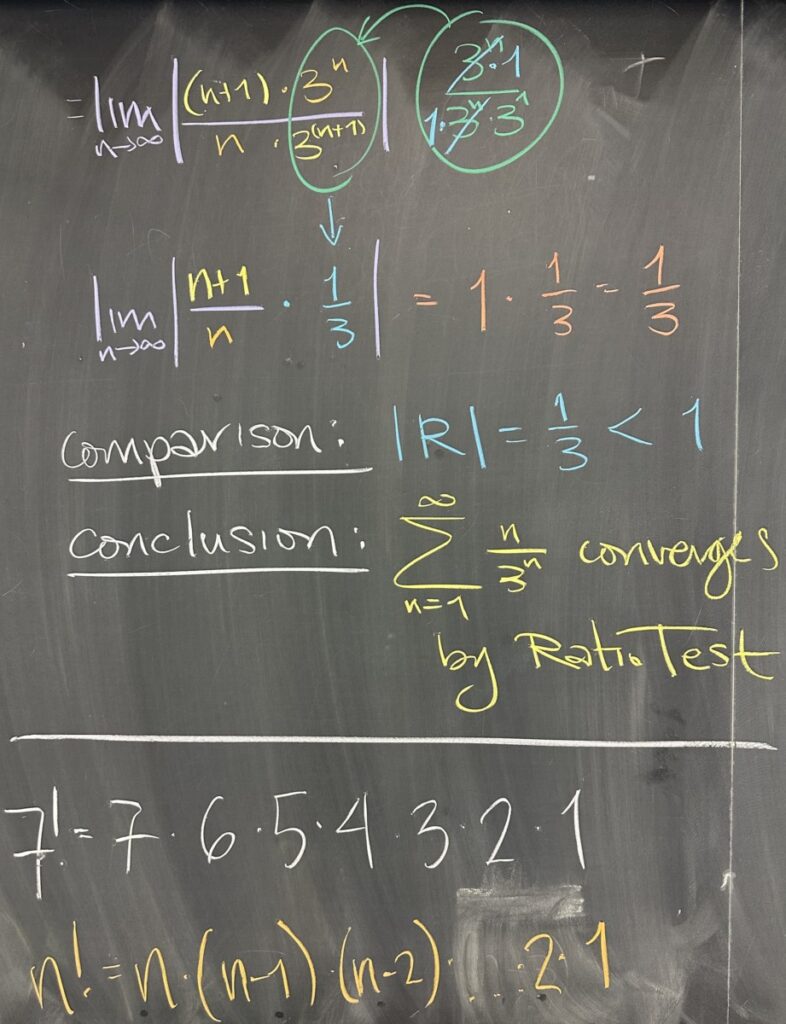 = lim n→∞ | (n+1) · 3^n / n · 3^(n+1) | 3^n · 1 / 1 · 3^n · 3^1
lim n→∞ | n+1 / n · 1/3 | = 1 · 1/3 = 1/3
comparison: |R| = 1/3 < 1
conclusion: ∑_{n=1}^{∞} n/3^n converges
by Ratio Test
7! = 7 · 6 · 5 · 4 · 3 · 2 · 1
n! = n · (n-1) · (n-2) · ... 2 · 1